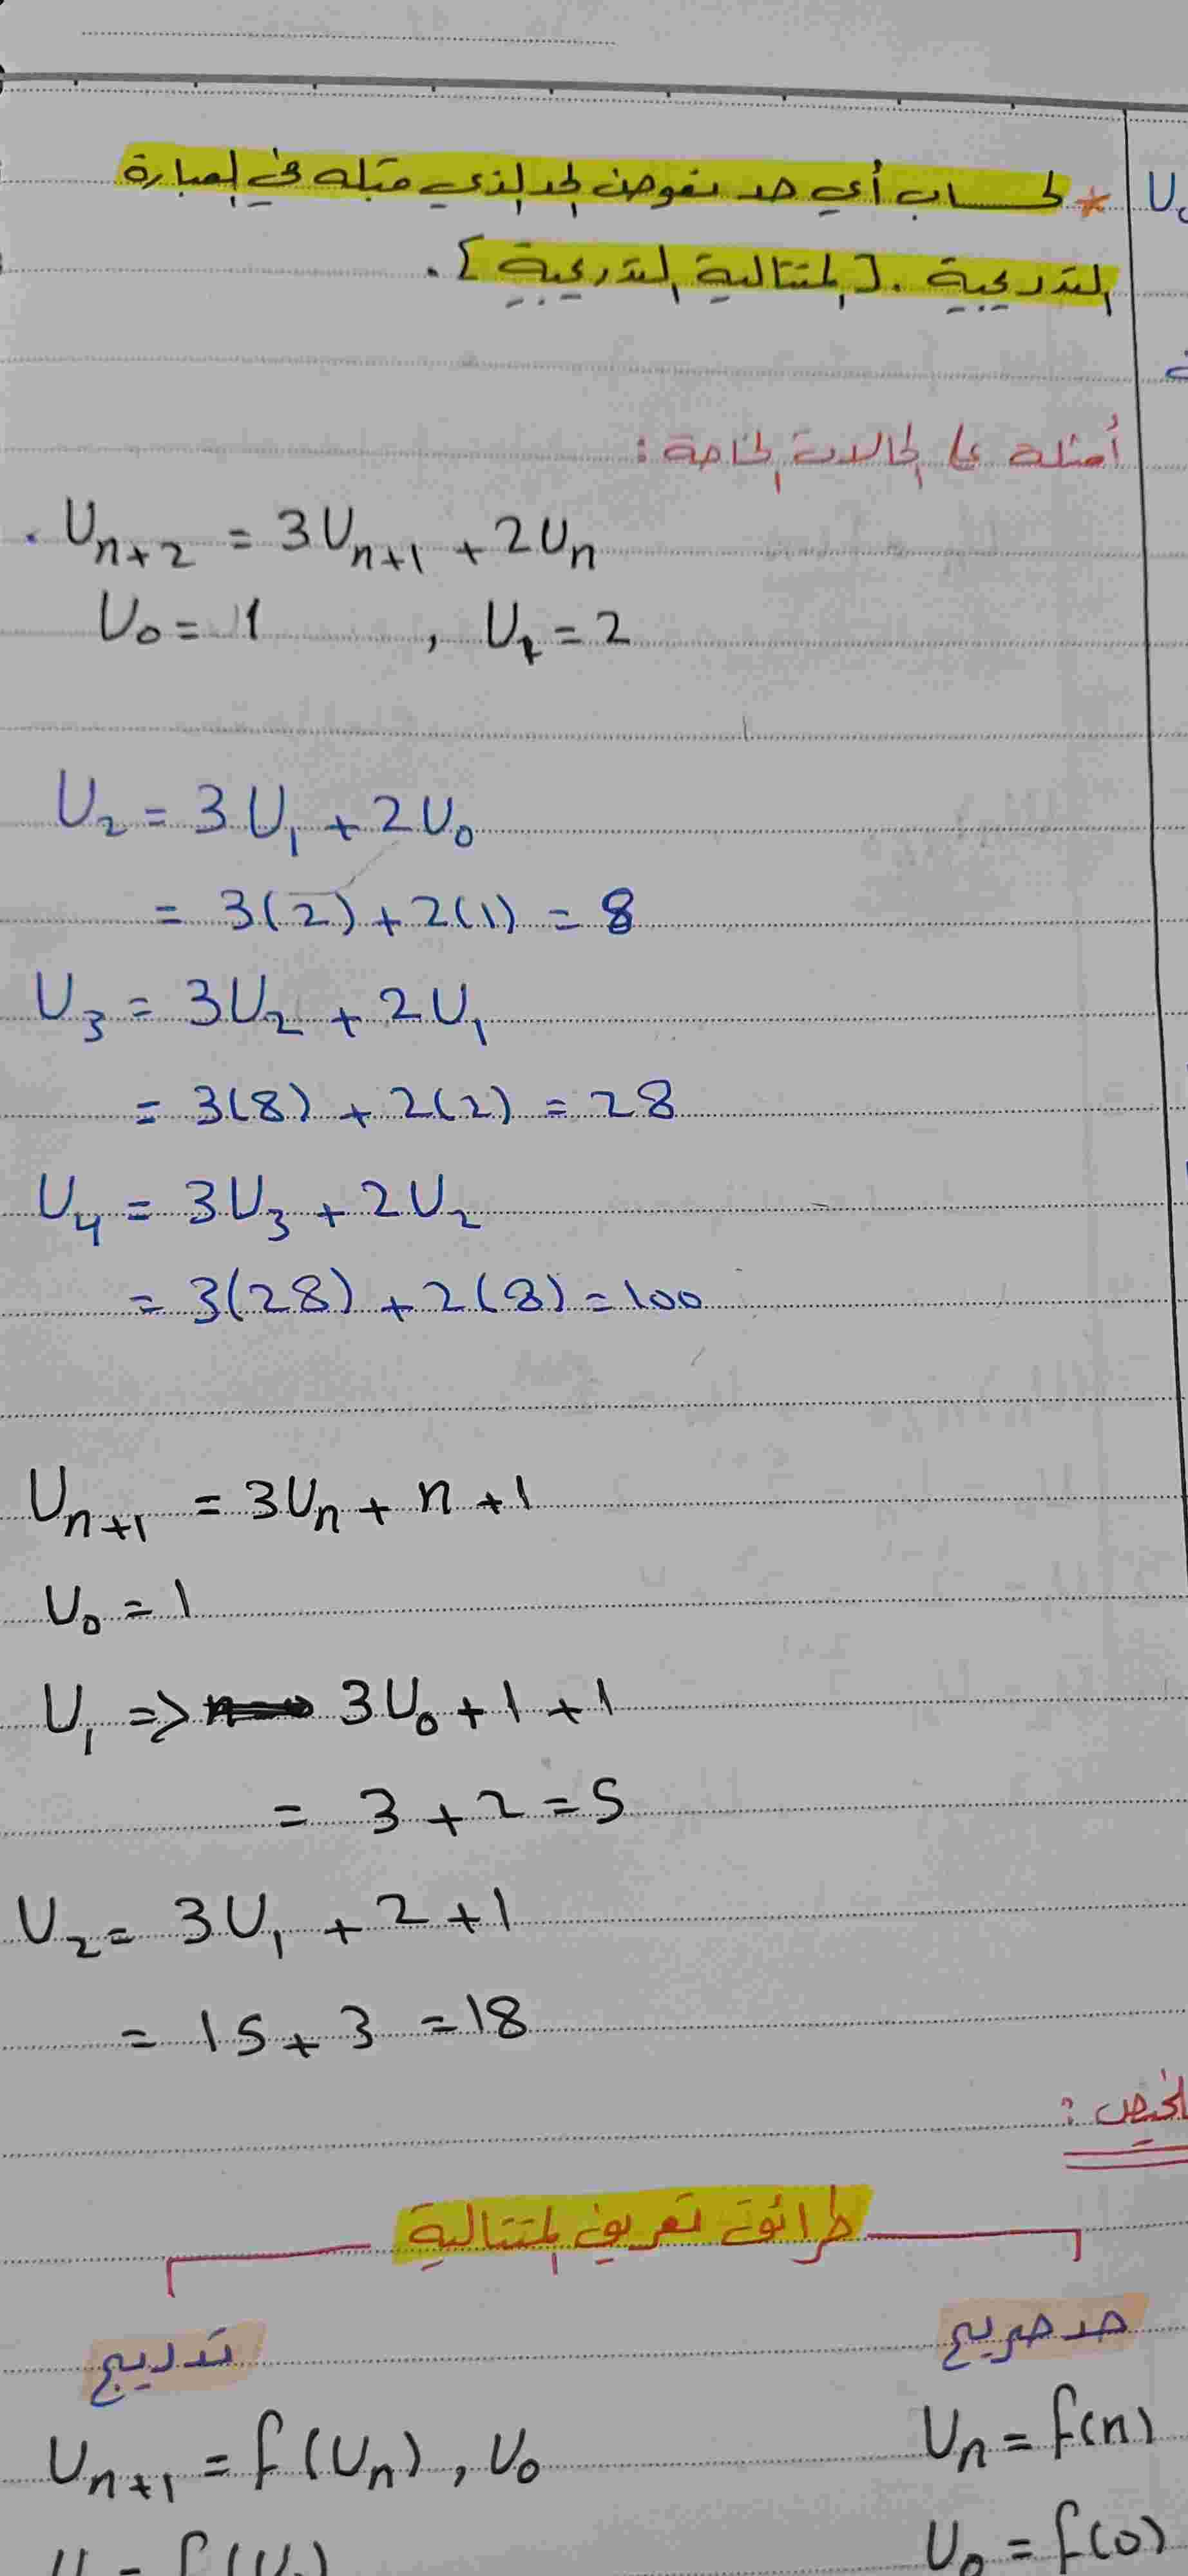 * لحساب أي حد نعوض الحد الذي قبله في العبارة
التدريجية . [المتتالية التدريجية] .
أمثلة على الحالات الخاصة :
. U_{n+2} = 3U_{n+1} + 2U_n
U_0 = 1 , U_1 = 2
U_2 = 3U_1 + 2U_0
= 3(2) + 2(1) = 8
U_3 = 3U_2 + 2U_1
= 3(8) + 2(2) = 28
U_4 = 3U_3 + 2U_2
= 3(28) + 2(8) = 100
U_{n+1} = 3U_n + n + 1
U_0 = 1
U_1 => 3U_0 + 1 + 1
= 3 + 2 = 5
U_2 = 3U_1 + 2 + 1
= 15 + 3 = 18
طرائق تعريف المتتالية
حد صريح
تدريج
U_n = f(n)
U_{n+1} = f(U_n) , U_0
U_0 = f(0)